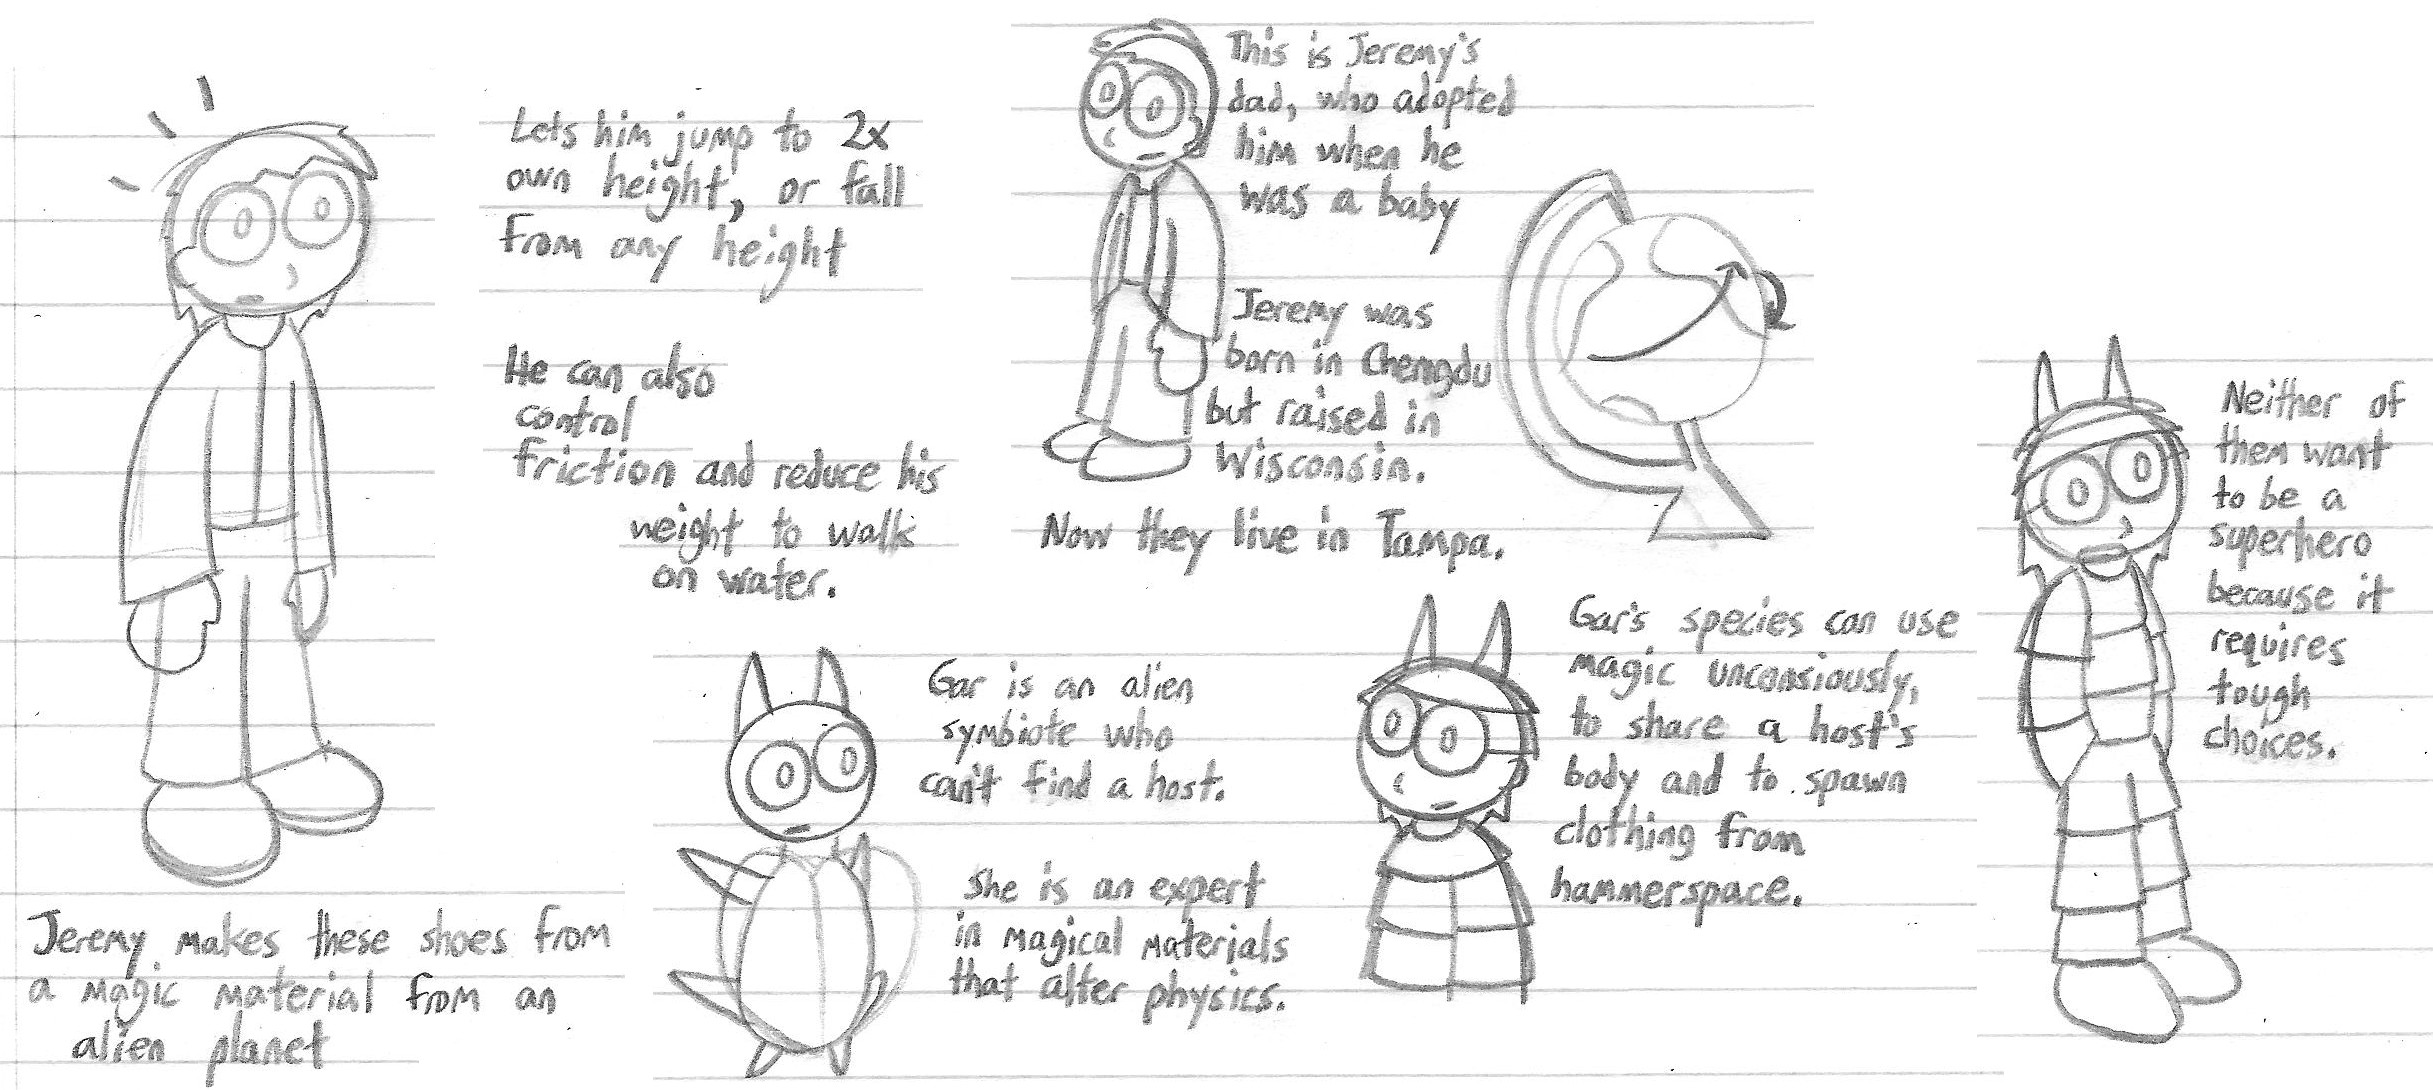 Lets him jump to 2x
own height, or fall
from any height
He can also
control
friction and reduce his
weight to walk
on water.
Jeremy makes these shoes from
a magic material from an
alien planet
This is Jeremy's
dad, who adopted
him when he
was a baby
Jeremy was
born in Chengdu
but raised in
Wisconsin.
Now they live in Tampa.
Gar is an alien
symbiote who
can't find a host.
She is an expert
in magical materials
that alter physics.
Gar's species can use
magic unconsiously,
to share a host's
body and to spawn
clothing from
hammerspace.
Neither of
them want
to be a
superhero
because it
requires
tough
choices.